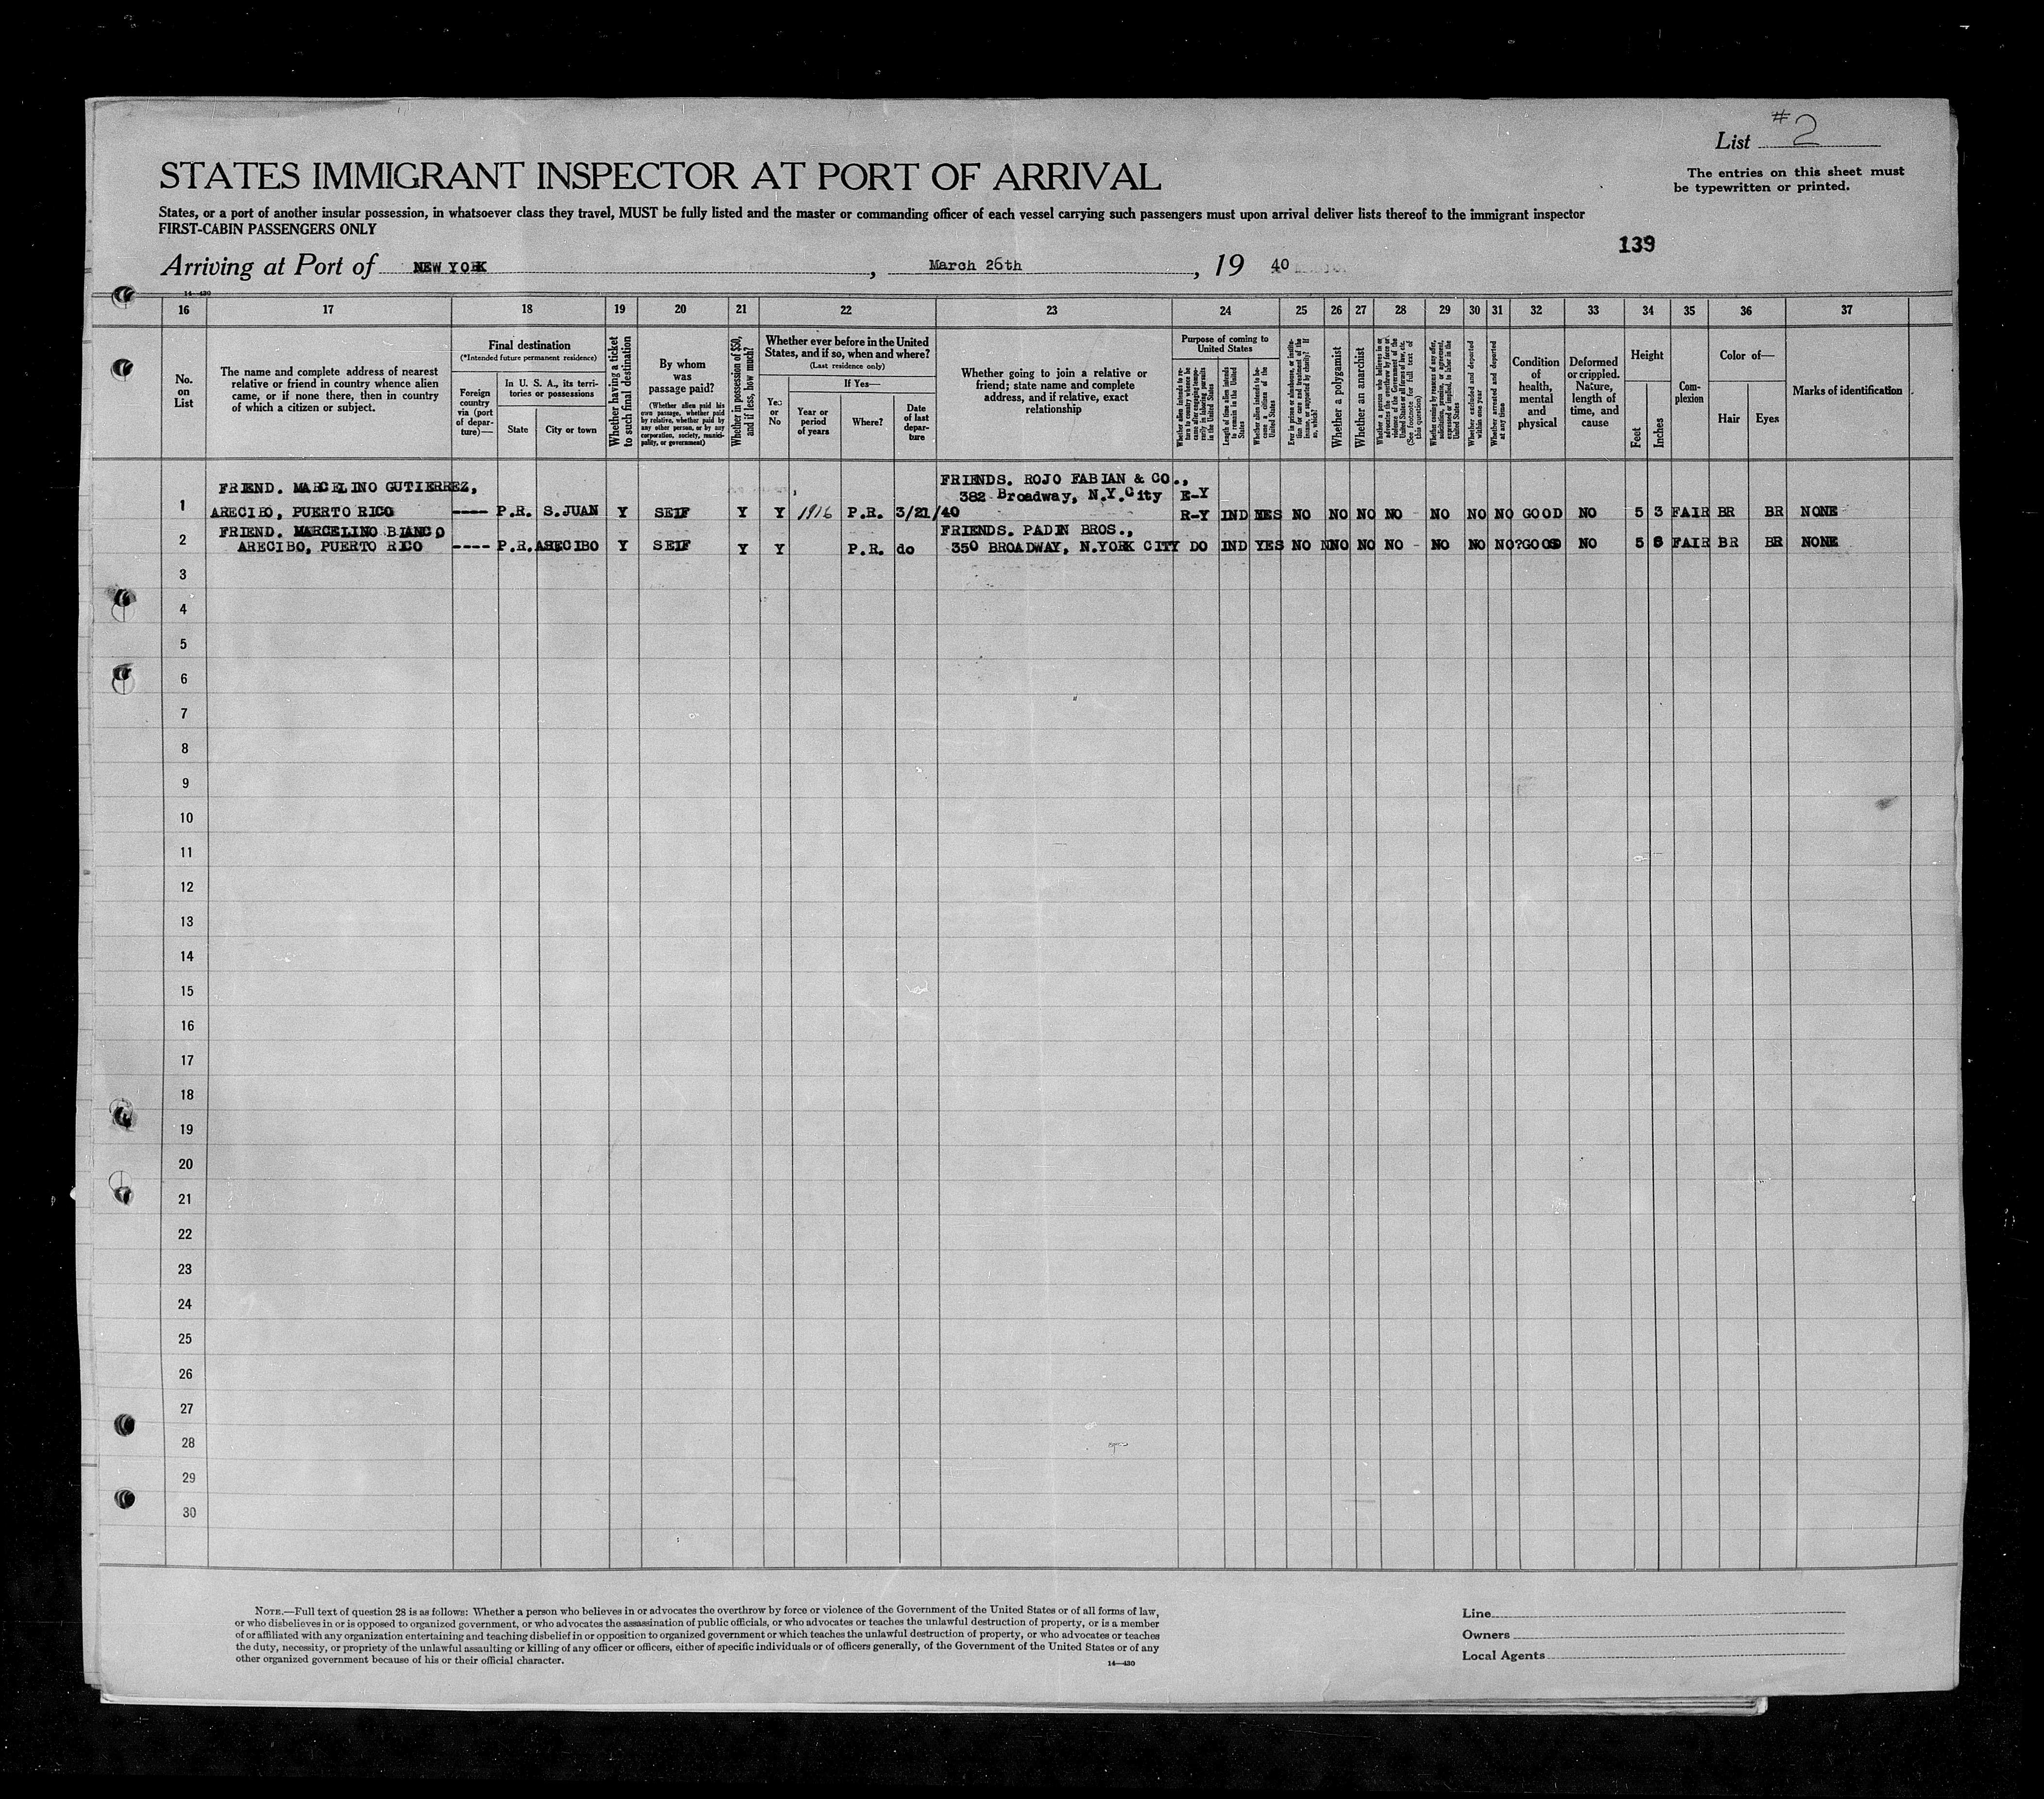 List #2
The entries on this sheet must
be typewritten or printed.
STATES IMMIGRANT INSPECTOR AT PORT OF ARRIVAL
States, or a port of another insular possession, in whatsoever class they travel, MUST be fully listed and the master or commanding officer of each vessel carrying such passengers must upon arrival deliver lists thereof to the immigrant inspector
FIRST-CABIN PASSENGERS ONLY
139
Arriving at Port of NEW YORK, March 26th, 19 40
14—430
16 17 18 19 20 21 22 23 24 25 26 27 28 29 30 31 32 33 34 35 36 37
No.
on
List
The name and complete address of nearest
relative or friend in country whence alien
came, or if none there, then in country
of which a citizen or subject.
Final destination
(*Intended future permanent residence)
Foreign
country
via (port
of depar-
ture)—
In U. S. A., its terri-
tories or possessions
State
City or town
Whether having a ticket
to such final destination
By whom
was
passage paid?
(Whether alien paid his
own passage, whether paid
by relative, whether paid by
any other person, or by any
corporation, society, munici-
pality, or government)
Whether in possession of $50,
and if less, how much?
Whether ever before in the United
States, and if so, when and where?
(Last residence only)
Yes
or
No
If Yes—
Year or
period
of years
Where?
Date
of last
depar-
ture
Whether going to join a relative or
friend; state name and complete
address, and if relative, exact
relationship
Purpose of coming to
United States
Whether alien intends to re-
turn to country whence he
came after engaging tempo-
rarily in laboring pursuits
in the United States
Length of time alien intends
to remain in the United
States
Whether alien intends to be-
come a citizen of the
United States
Ever in prison or almshouse, or institu-
tion for care and treatment of the
insane, or supported by charity? If
so, which?
Whether a polygamist
Whether an anarchist
Whether a person who believes in or
advocates the overthrow by force or
violence of the Government of the
United States or all forms of law, etc.
(See footnote for full text of
this question)
Whether coming by reasons of any offer,
solicitation, promise, or agreement,
expressed or implied, to labor in the
United States
Whether excluded and deported
within one year
Whether arrested and deported
at any time
Condition
of
health,
mental
and
physical
Deformed
or crippled.
Nature,
length of
time, and
cause
Height
Feet
Inches
Com-
plexion
Color of—
Hair
Eyes
Marks of identification
FRIEND. MARCELINO GUTIERREZ,
FRIENDS. ROJO FABIAN & CO.,
382 Broadway, N.Y.City
1 ARECIBO, PUERTO RICO ---- P.R. S.JUAN Y SELF Y Y 1916 P.R. 3/21/40 R-Y IND YES NO NO NO NO - NO NO NO GOOD NO 5 3 FAIR BR BR NONE
FRIEND. MARCELINO BIANCO FRIENDS. PADIN BROS.,
2 ARECIBO, PUERTO RICO ---- P.R. ARECIBO Y SELF Y Y P.R. do 350 BROADWAY, N.YORK CITY DO IND YES NO NNO NO NO - NO NO NO?GOOD NO 5 FAIR BR BR NONE
3
4
5
6
7
8
9
10
11
12
13
14
15
16
17
18
19
20
21
22
23
24
25
26
27
28
29
30
NOTE.—Full text of question 28 is as follows: Whether a person who believes in or advocates the overthrow by force or violence of the Government of the United States or of all forms of law,
or who disbelieves in or is opposed to organized government, or who advocates the assassination of public officials, or who advocates or teaches the unlawful destruction of property, or is a member
of or affiliated with any organization entertaining and teaching disbelief in or opposition to organized government or which teaches the unlawful destruction of property, or who advocates or teaches
the duty, necessity, or propriety of the unlawful assaulting or killing of any officer or officers, either of specific individuals or of officers generally, of the Government of the United States or of any
other organized government because of his or their official character.
14—430
Line
Owners
Local Agents